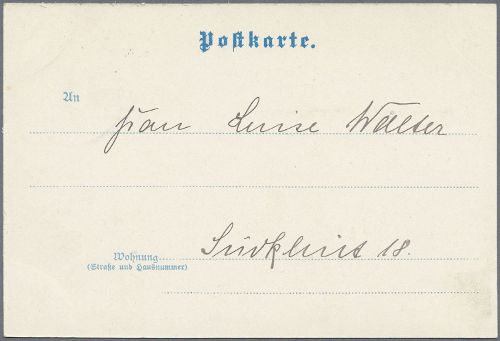 Postkarte.
An
Frau Luise Walter
Wohnung
(Straße und Hausnummer)
Südklint 18.